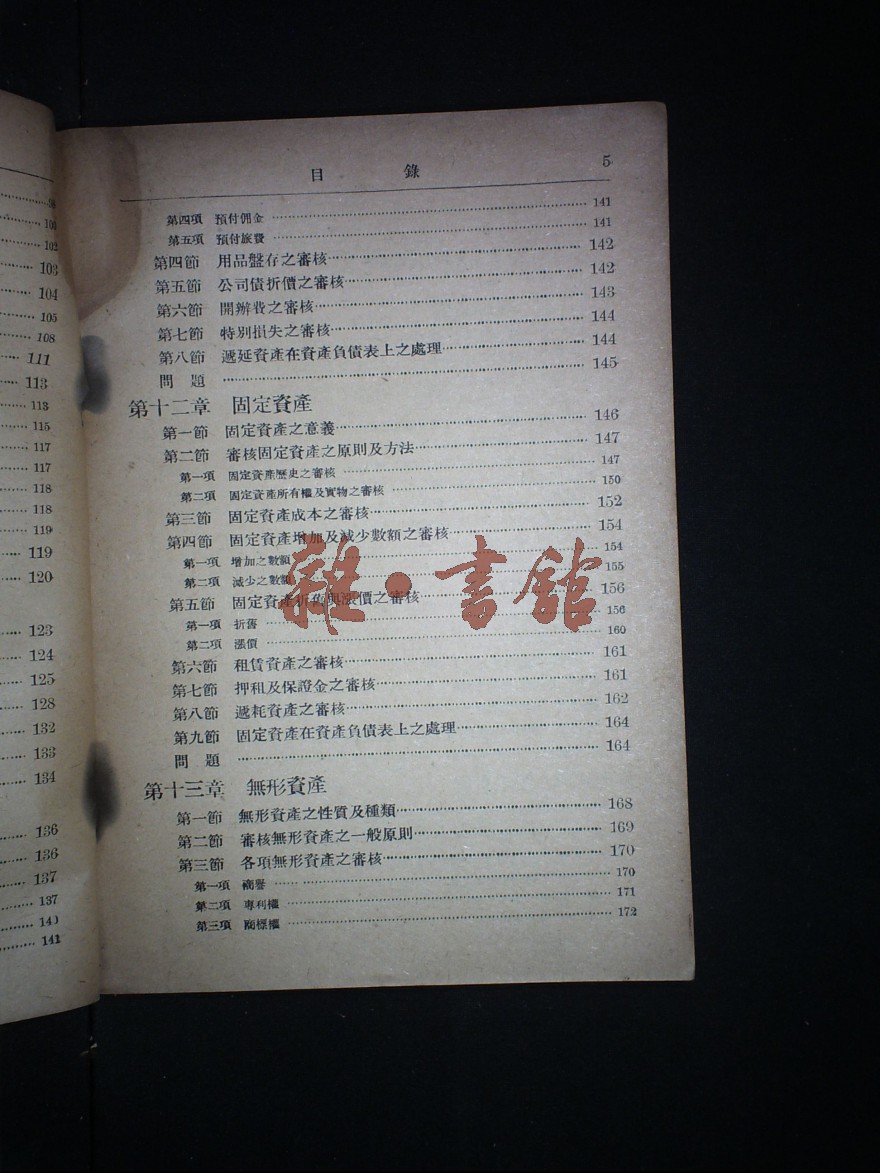 98
101
102
103
104
105
108
111
113
113
115
117
117
118
118
119
119
120
123
124
125
128
132
133
134
136
136
137
137
140
141
目 錄 5
第四項 預付佣金 141
第五項 預付旅費 141
第四節 用品盤存之審核 142
第五節 公司債折價之審核 142
第六節 開辦費之審核 143
第七節 特別損失之審核 144
第八節 遞延資產在資產負債表上之處理 144
問 題 145
第十二章 固定資產
第一節 固定資產之意義 146
第二節 審核固定資產之原則及方法 147
第一項 固定資產歷史之審核 147
第二項 固定資產所有權及實物之審核 150
第三節 固定資產成本之審核 152
第四節 固定資產增加及減少數額之審核 154
第一項 增加之數額 154
第二項 減少之數額 155
第五節 固定資產折舊與漲價之審核 156
第一項 折舊 156
第二項 漲價 160
第六節 租賃資產之審核 161
第七節 押租及保證金之審核 161
第八節 遞耗資產之審核 162
第九節 固定資產在資產負債表上之處理 164
問 題 164
第十三章 無形資產
第一節 無形資產之性質及種類 168
第二節 審核無形資產之一般原則 169
第三節 各項無形資產之審核 170
第一項 商譽 170
第二項 專利權 171
第三項 商標權 172
雜·書館